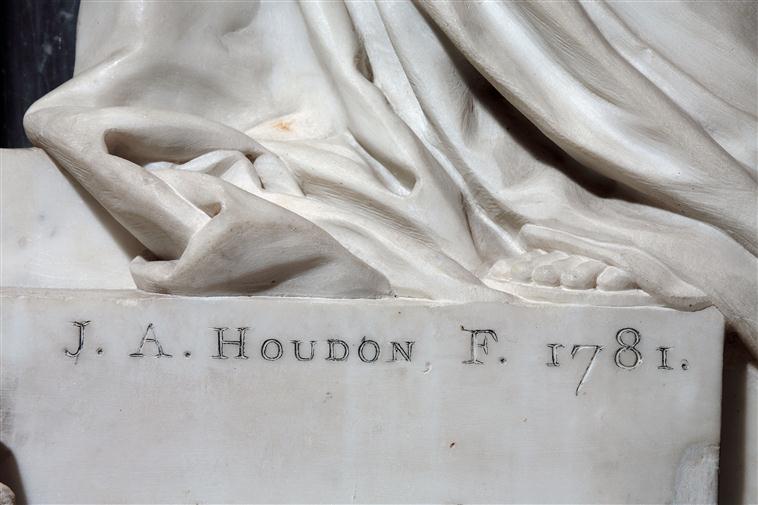 J. A. HOUDON F. 1781.